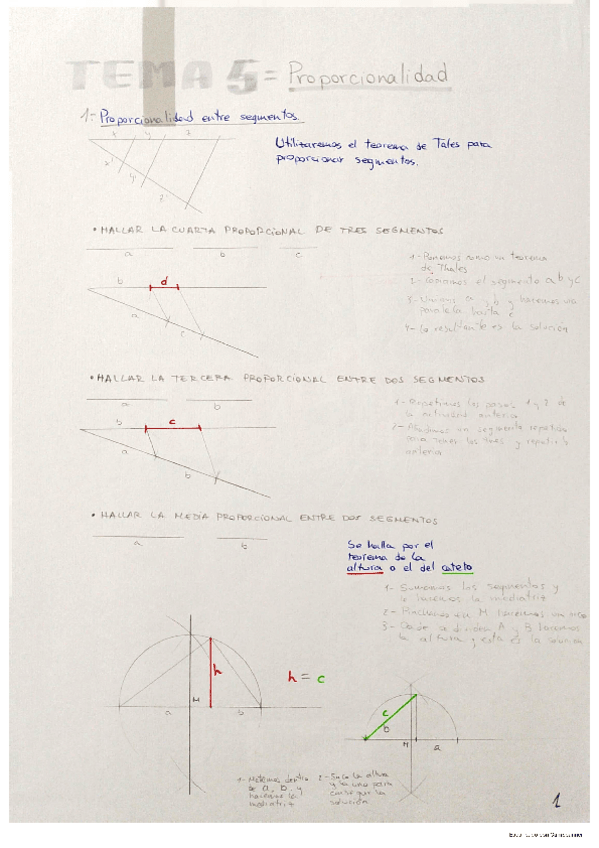 TEMA 5 = Proporcionalidad
1- Proporcionalidad entre segmentos.
x y z
x' y' z'
Utilizaremos el teorema de Tales para
proporcionar segmentos.
• HALLAR LA CUARTA PROPORCIONAL DE TRES SEGMENTOS
a b c
b d
a c
1- Ponemos como un teorema
de Thales
2- Copiamos el segmento a b y c
3- Unimos a y b y hacemos una
paralela hasta c
4- La resultante es la solución
• HALLAR LA TERCERA PROPORCIONAL ENTRE DOS SEGMENTOS
a b
b c
a
b
1- Repetimos los pasos 1 y 2 de
la actividad anterior
2- Añadimos un segmento repetido
para tener los tres y repetir lo
anterior
• HALLAR LA MEDIA PROPORCIONAL ENTRE DOS SEGMENTOS
a b
Se halla por el
teorema de la
altura o el del cateto
1- Sumamos los segmentos y
le hacemos la mediatriz
2- Pinchamos en M hacemos un arco
3- Donde se dividen A y B hacemos
la altura y esta es la solución
h
h = c
M
a b
c
b
M a
1- Metemos dentro
de a, b y
hacemos la
mediatriz
2- Saco la altura
y la uno para
conseguir la
solución
1